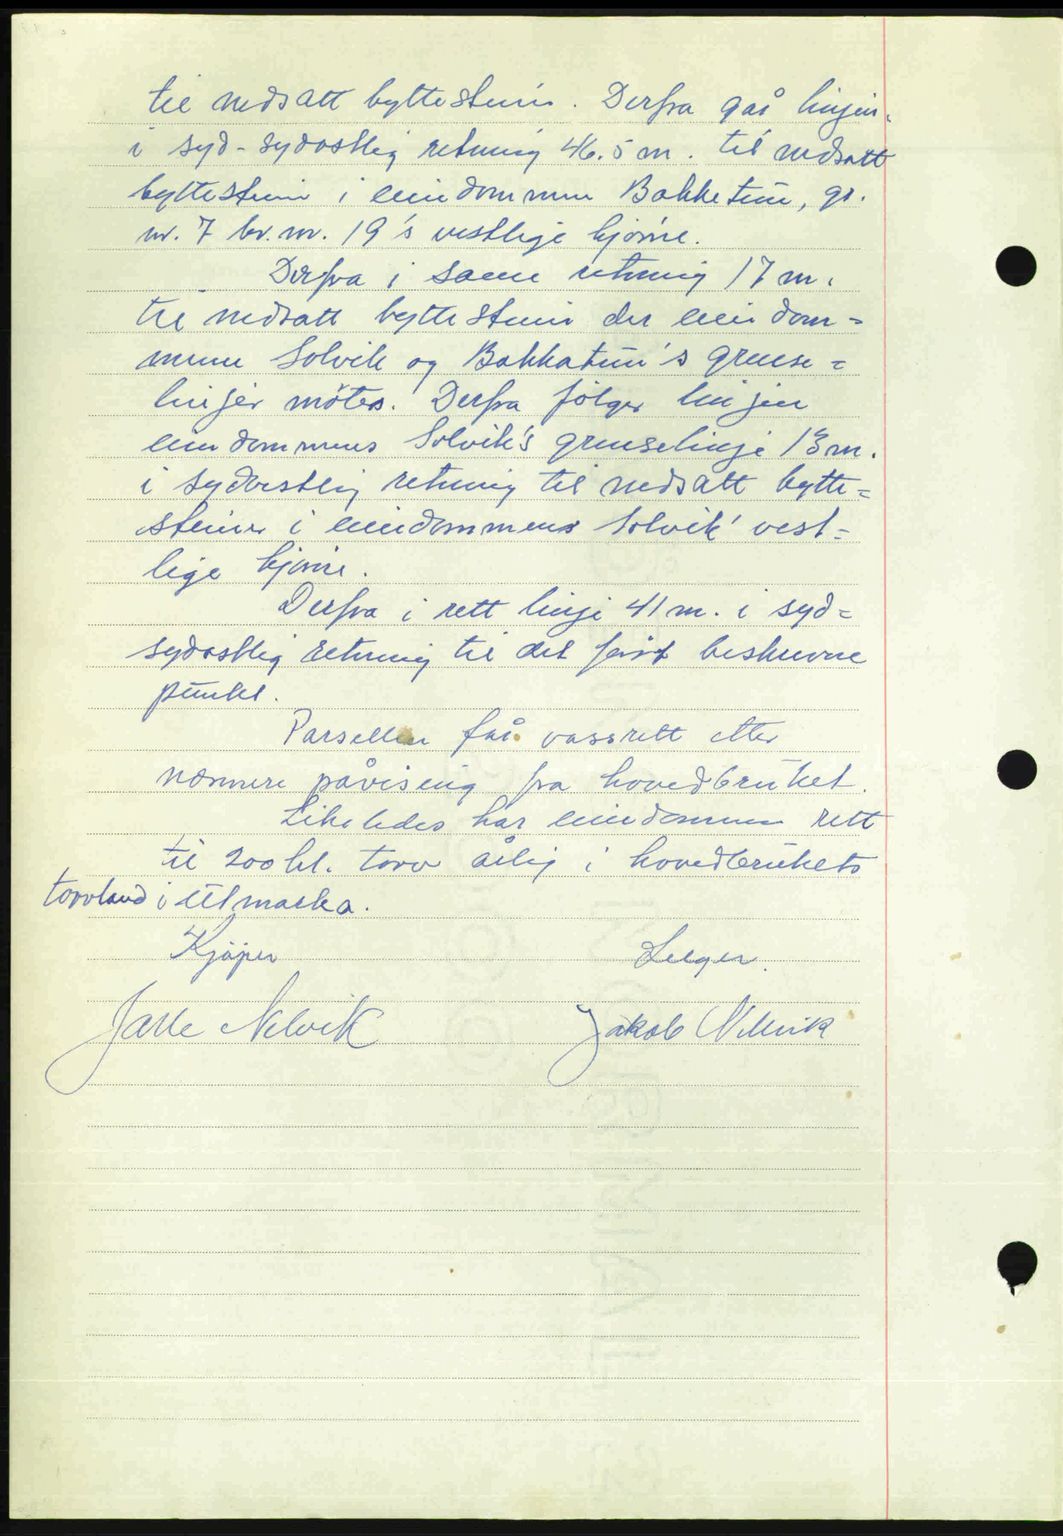 til nedsatt byttestein. Derfra går linjen
i syd-sydostlig retning 46.5 m. til nedsatt
byttestein i eiendommen Bakketun, gr.
nr. 7 br. nr. 19's vestlige hjørne.
Derfra i same retning 17 m.
til nedsatt byttestein der eien dom=
mene Solvik og Bakkatun's grense=
linjer mötes. Derfra følger linjen
eiendommens Solvik's grenselinje 13 m.
i sydvestlig retning til nedsatt bytte=
steiner i eiendommens Solvik' vest=
lige hjørne.
Derfra i rett linje 41 m. i syd=
sydostlig retning til det først beskrevne
punkt.
Parsellen får vassrett etter
nærmere påvising fra hovedbruket.
Likeledes har eiendommen rett
til 200 hl. torv årlig i hovedbrukets
torvland i utmarka.
Kjøper Selger.
Jarle Nelvik Jakob Nelvik